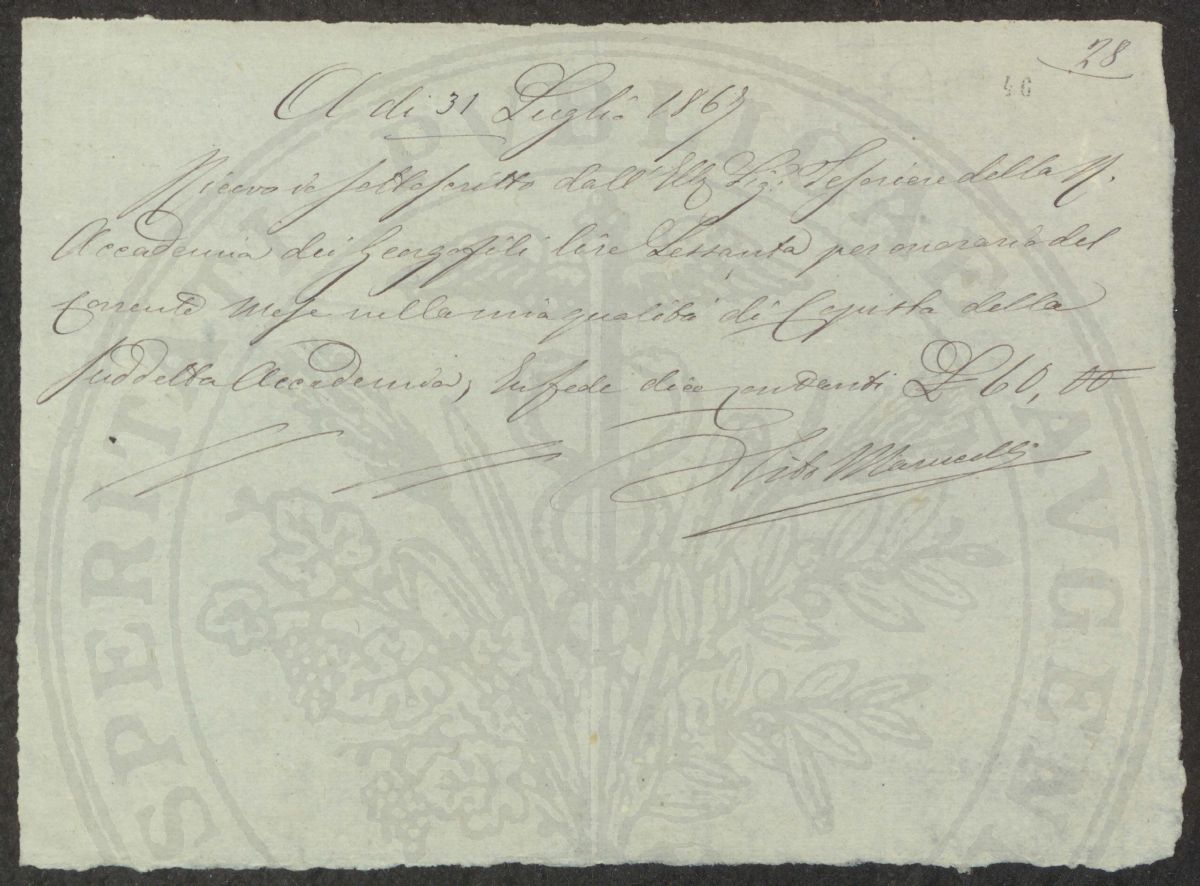 28
46
A di 31 Luglio 1867
Ricevo io sottoscritto dall' Ill. Sig. Tesoriere della R.
Accademia dei Georgofili lire Sessanta per onorario del
corrente mese nella mia qualità di Copista della
suddetta Accademia, In fede dico contanti £ 60, 00
Marucelli
PROSPERITATI PUBLICAE AUGENDAE